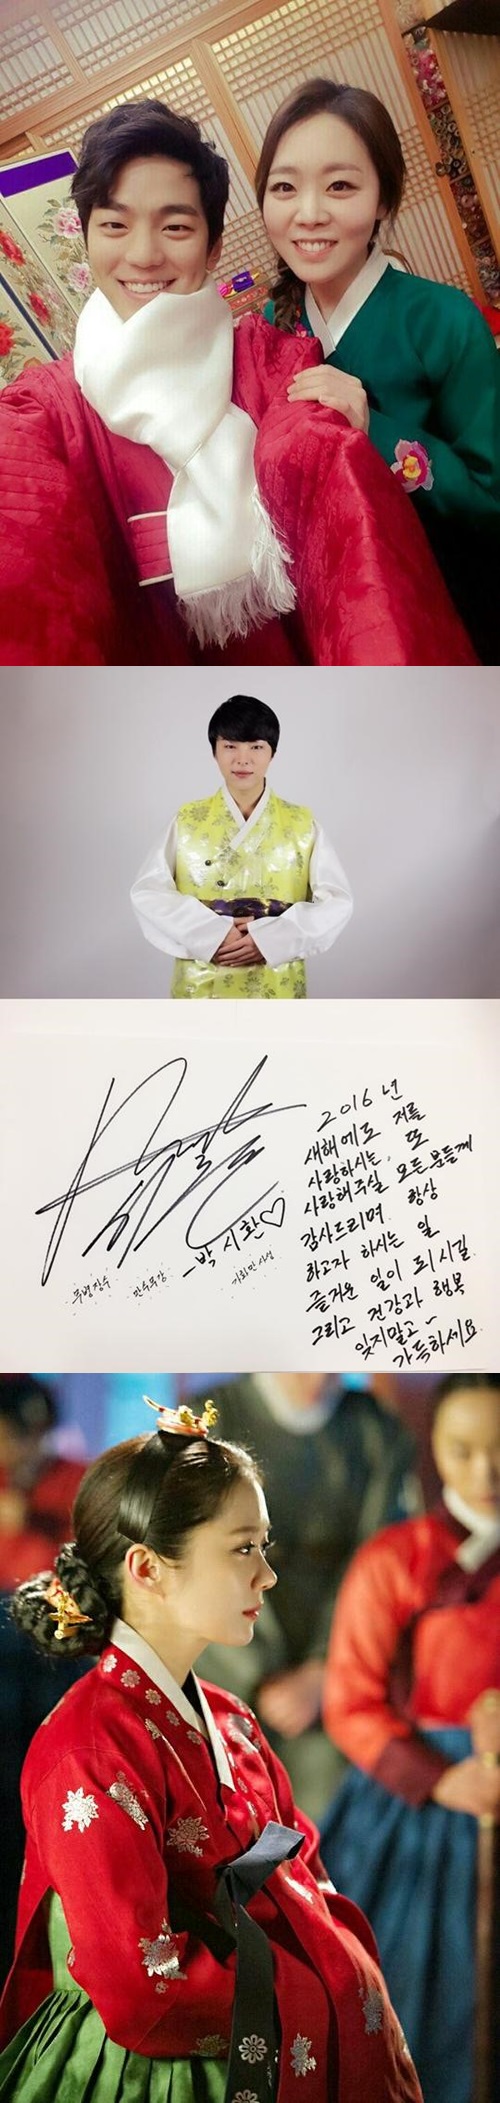 박시환♡
무병장수
만수무강
2016년
새해에도 저를
사랑하시는, 또
사랑해주실 모든분들께
감사드리며 항상
하고자 하시는 일
즐거운 일이 되시길
그리고 건강과 행복
잊지말고~
가득하세요.